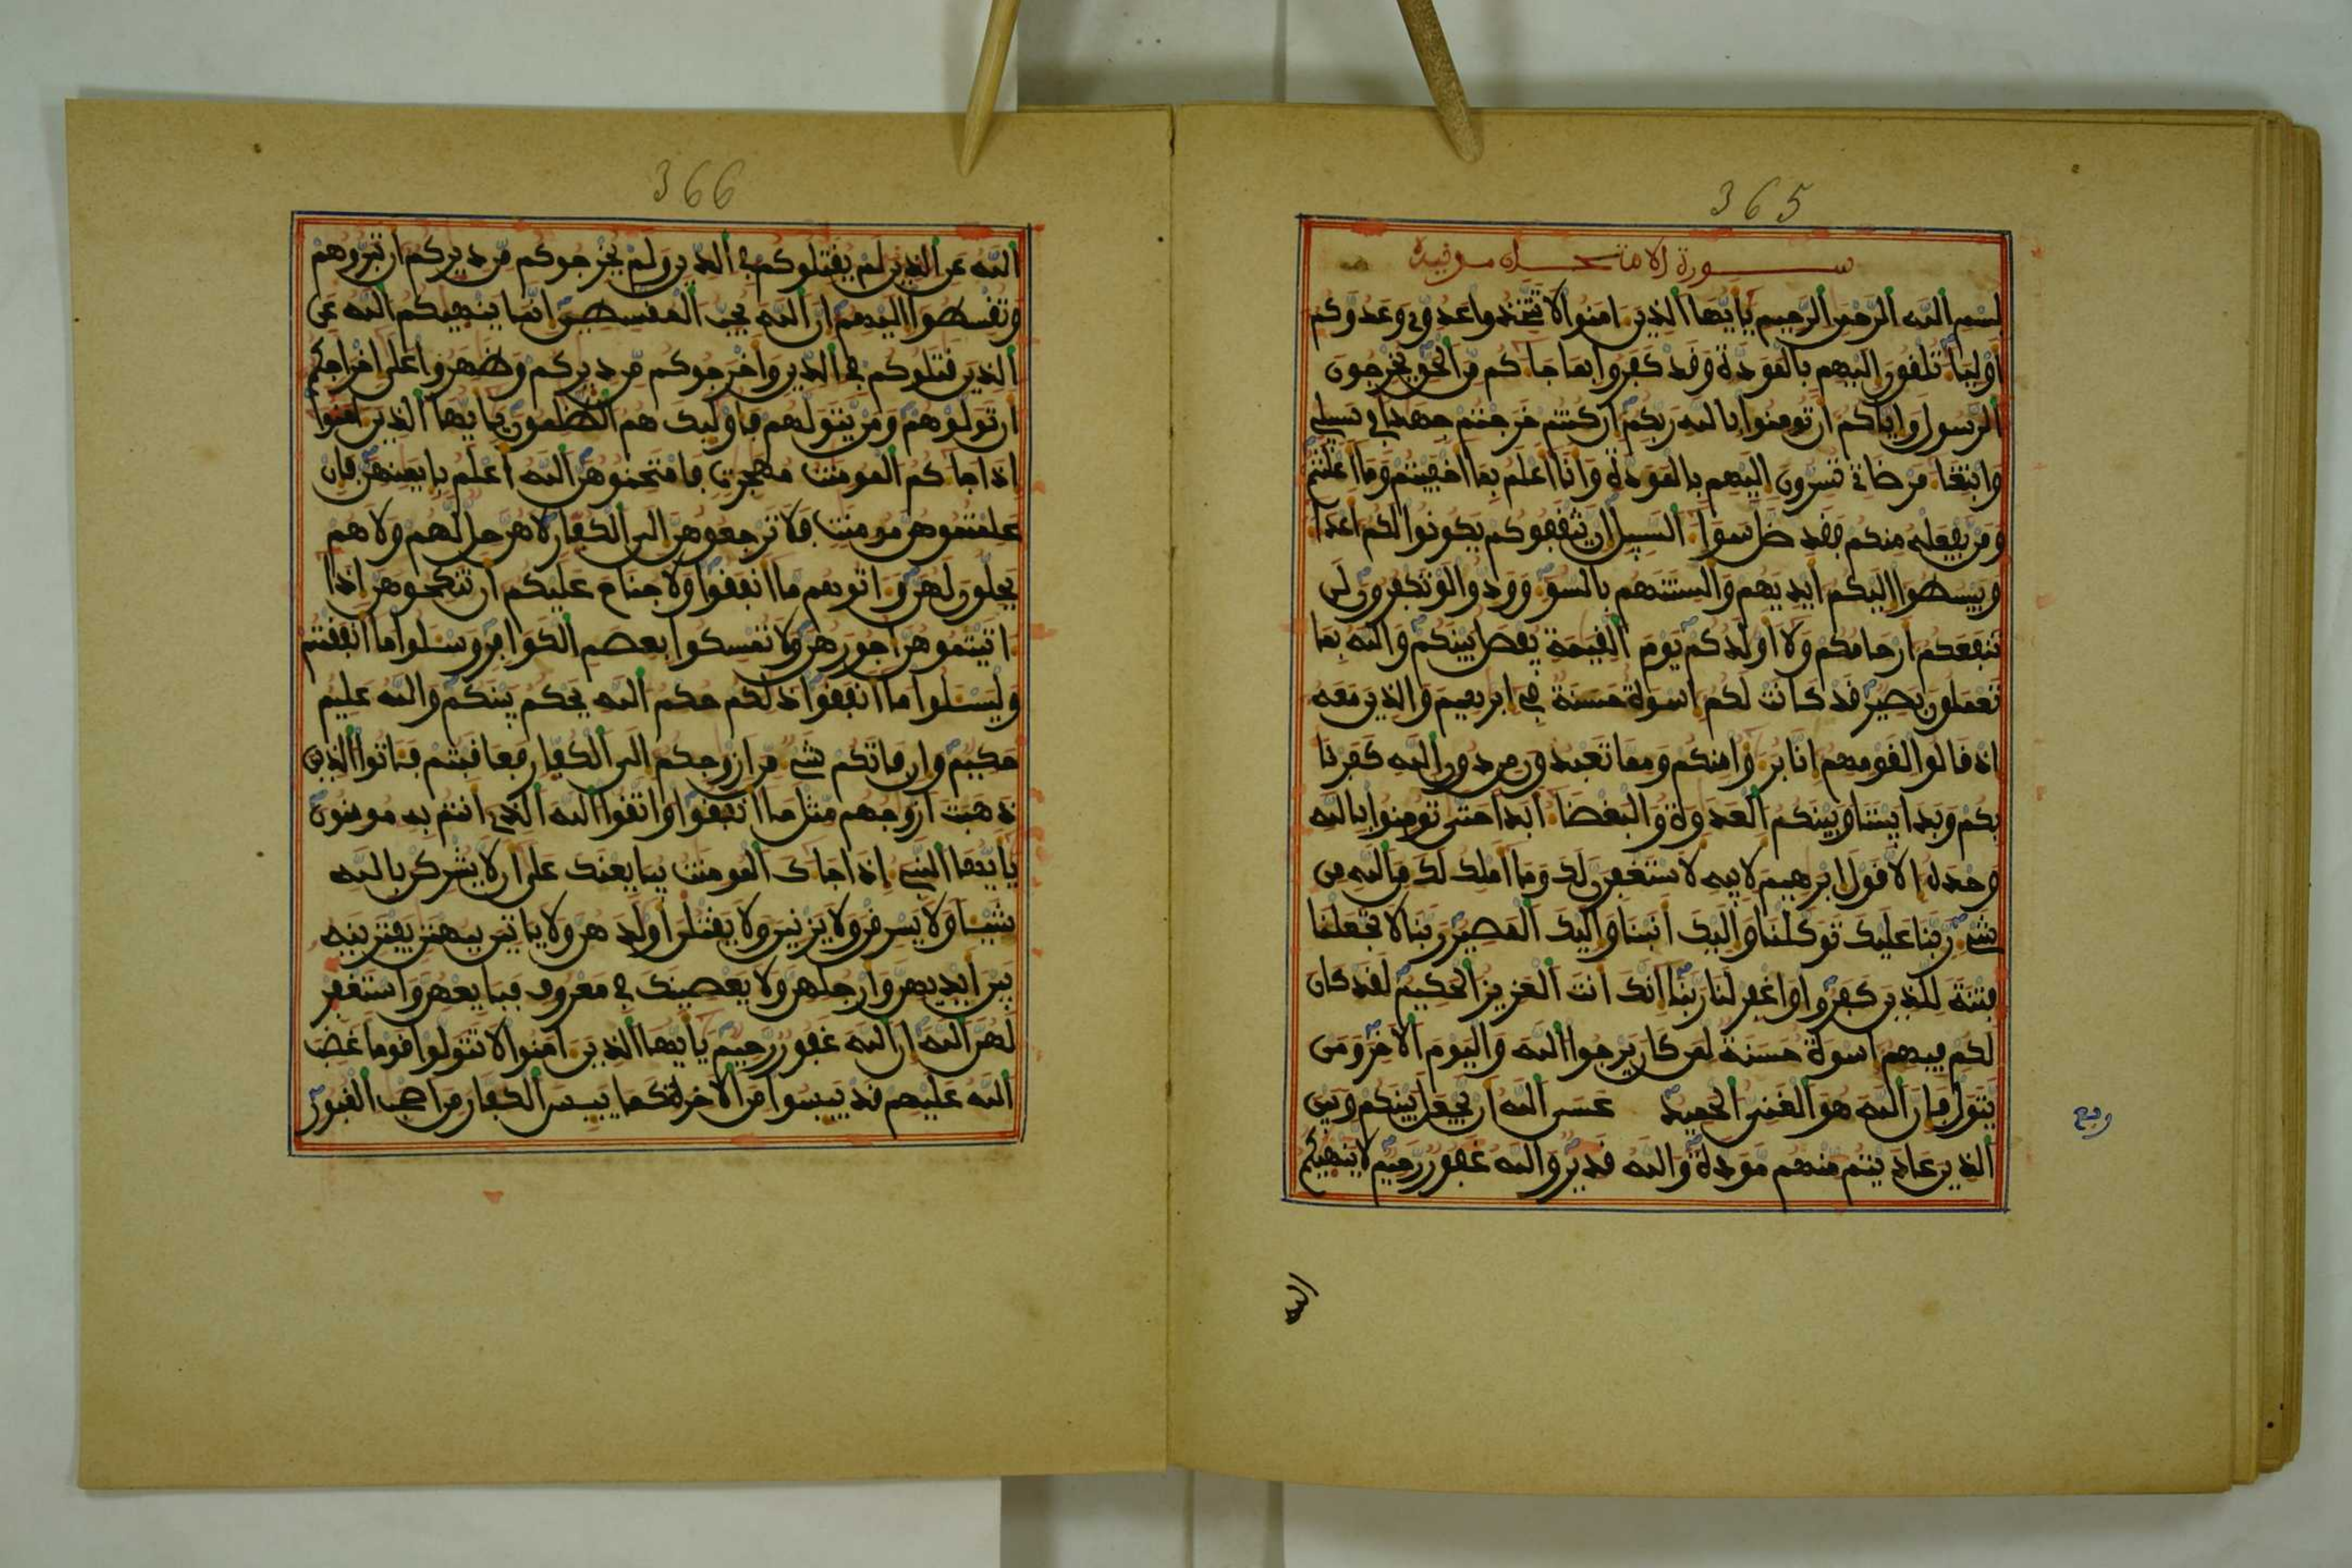 365
سورة الامتحان مدنية
بسم الله الرحمن الرحيم يايها الذين امنوا لا تتخذوا عدوي وعدوكم
اوليا تلقون اليهم بالمودة وقد كفروا بما جاكم من الحق يخرجون
الرسول واياكم ان تومنوا بالله ربكم ان كنتم خرجتم جهدا في سبيلي
وابتغا مرضاتي تسرون اليهم بالمودة وانا اعلم بما اخفيتم وما اعلنتم
ومن يفعله منكم فقد ضل سوا السبيل ان يثقفوكم يكونوا لكم اعدا
ويبسطوا اليكم ايديهم والسنتهم بالسو وودوا لو تكفرون لن
تنفعكم ارحامكم ولا اولدكم يوم القيمة يفصل بينكم والله بما
تعملون بصير قد كانت لكم اسوة حسنة في ابرهيم والذين معه
اذ قالوا لقومهم انا برءوا منكم ومما تعبدون من دون الله كفرنا
بكم وبدا بيننا وبينكم العدوة والبغضا ابدا حتى تومنوا بالله
وحده الا قول ابرهيم لابيه لاستغفرن لك وما املك لك من الله من
شي ربنا عليك توكلنا واليك انبنا واليك المصير ربنا لا تجعلنا
فتنة للذين كفروا واغفر لنا ربنا انك انت العزيز الحكيم لقد كان
لكم فيهم اسوة حسنة لمن كان يرجوا الله واليوم الاخر ومن
يتول فان الله هو الغني الحميد عسى الله ان يجعل بينكم وبين
الذين عاديتم منهم مودة والله قدير والله غفور رحيم لا ينهيكم
ربع
الله
366
الله عن الذين لم يقتلوكم في الدين ولم يخرجوكم من ديركم ان تبروهم
وتقسطوا اليهم ان الله يحب المقسطين انما ينهيكم الله عن
الذين قتلوكم في الدين واخرجوكم من ديركم وظهروا على اخراجكم
ان تولوهم ومن يتولهم فاوليك هم الظلمون يايها الذين امنوا
اذا جاكم المومنت مهجرت فامتحنوهن الله اعلم بايمنهن فان
علمتموهن مومنت فلا ترجعوهن الى الكفار لا هن حل لهم ولا هم
يحلون لهن واتوهم ما انفقوا ولا جناح عليكم ان تنكحوهن اذا
اتيتموهن اجورهن ولا تمسكوا بعصم الكوافر وسلوا ما انفقتم
وليسلوا ما انفقوا ذلكم حكم الله يحكم بينكم والله عليم
حكيم وان فاتكم شي من ازوجكم الى الكفار فعاقبتم فاتوا الذين
ذهبت ازوجهم مثل ما انفقوا واتقوا الله الذي انتم به مومنون
يايها النبي اذا جاك المومنت يبايعنك على ان لا يشركن بالله
شيا ولا يسرقن ولا يزنين ولا يقتلن اولدهن ولا ياتين ببهتن يفترينه
بين ايديهن وارجلهن ولا يعصينك في معروف فبايعهن واستغفر
لهن الله ان الله غفور رحيم يايها الذين امنوا لا تتولوا قوما غضب
الله عليهم قد ييسوا من الاخرة كما ييس الكفار من اصحب القبور